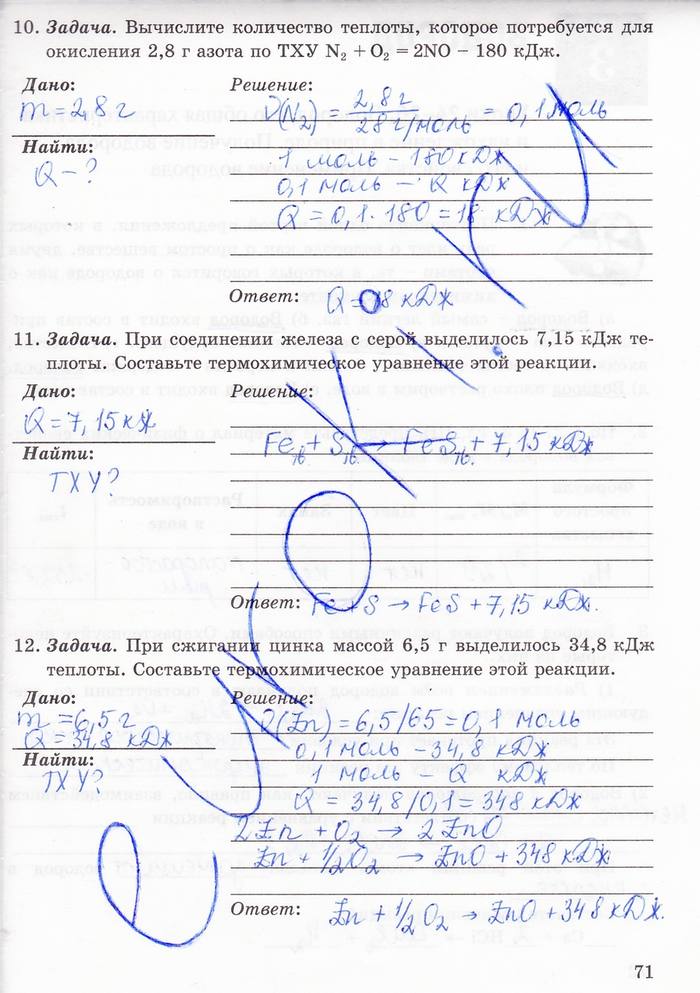 10. Задача. Вычислите количество теплоты, которое потребуется для
окисления 2,8 г азота по ТХУ N₂ + O₂ = 2NO − 180 кДж.
Дано:
m = 2,8 г
Найти:
Q − ?
Решение:
ν(N₂) = 2,8 г / 28 г/моль = 0,1 моль
1 моль − 180 кДж
0,1 моль − Q кДж
Q = 0,1 · 180 = 18 кДж
Ответ: Q = 18 кДж
11. Задача. При соединении железа с серой выделилось 7,15 кДж те-
плоты. Составьте термохимическое уравнение этой реакции.
Дано:
Q = 7,15 кДж
Найти:
ТХУ?
Решение:
Fe тв. + S тв. → FeS тв. + 7,15 кДж
Ответ: Fe + S → FeS + 7,15 кДж.
12. Задача. При сжигании цинка массой 6,5 г выделилось 34,8 кДж
теплоты. Составьте термохимическое уравнение этой реакции.
Дано:
m = 6,5 г
Q = 34,8 кДж
Найти:
ТХУ?
Решение:
ν(Zn) = 6,5/65 = 0,1 моль
0,1 моль − 34,8 кДж
1 моль − Q кДж
Q = 34,8/0,1 = 348 кДж
2Zn + O₂ → 2ZnO
Zn + 1/2O₂ → ZnO + 348 кДж
Ответ: Zn + 1/2O₂ → ZnO + 348 кДж.
71